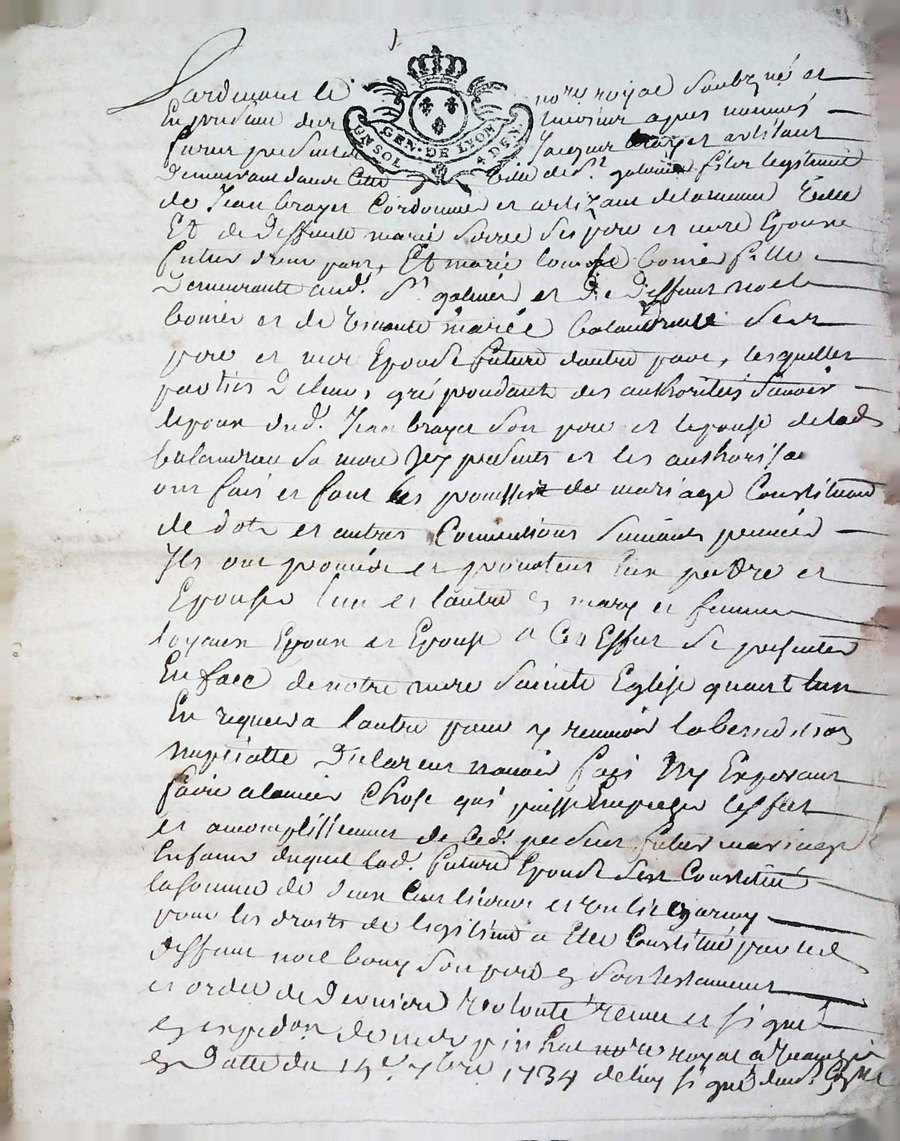 Pardevant le nore royal Soubzné et
En presence des tesmoins apres nommés
furent presents Jacques brayer artisant
UN SOL GEN. DE LYON 4 DEN
Demeurant dans cette ville de St. galmier fils legitime
de Jean brayer Cordonnier et artizant de la meme ville
Et de deffunte marie Ses pere et mere Epoux
futur d'une part, Et marie bonier fille
Demeurante aud. St. galmier et de deffunt noel
bonier et de vivante marie balandraud Ses
pere et mere Epouse future d'autre part, lesquelles
parties de leurs gré procedant des authorités Scavoir
lepoux dud. Jean brayer Son pere et lepouse de lad.
balandraud Sa mere Icy presents et les authorisant
ont fait et font les promesses de mariage Constitution
de dote et autres Conventions Suivantes premier
Ils ont promis et promettent Sun prendre et
Epouser l'un et l'autre en mary et femme
loyaux Epoux et Epouse a Cet Effet Se presenter
En face de notre mere Sainte Eglise quant l'un
En requerra l'autre pour y recevoir la benediction
nuptialle Declarant n'avoir fait Ny
faire a lavenir Chose qui puisse Empecher les fet
et accomplissement de Ced. present futur mariage
En faveur duquel lad. future Epouse S'est Constitué
la Somme de deux Cent livres et un lit garny
pour les droits de legitime a Elle Constitué par led.
deffunt noel bony Son pere en Son testament
et ordre de derniere volonté receu et Signé
en expedon de me pinhac nore royal a
en Datte du 14e. 7bre. 1734 de luy Signé